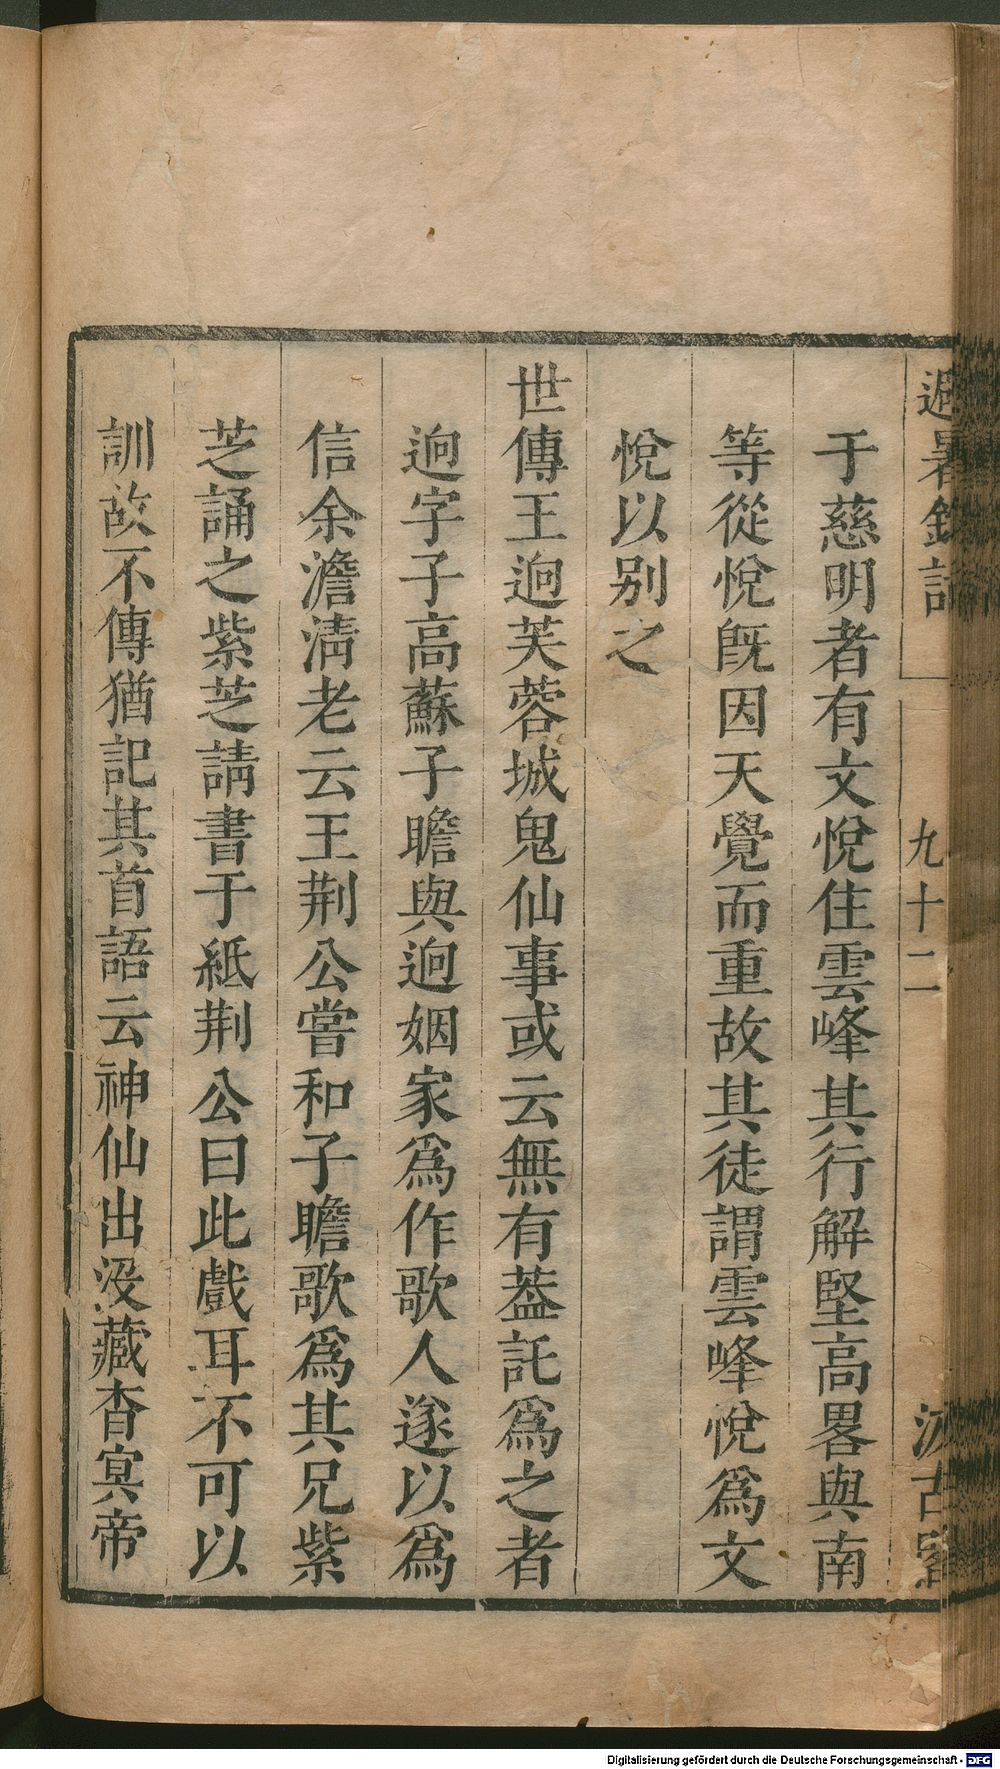 避暑錄話
九十二
汲古閣
于慈明者有文悅住雲峰其行解堅高畧與南
等從悅旣因天覺而重故其徒謂雲峰悅爲文
悅以别之
世傳王迥芙蓉城鬼仙事或云無有葢託爲之者
迥字子高蘇子瞻與迥姻家爲作歌人遂以爲
信余澹淸老云王荆公嘗和子瞻歌爲其兄紫
芝誦之紫芝請書于紙荆公曰此戲耳不可以
訓故不傳猶記其首語云神仙出没藏杳冥帝
Digitalisierung gefördert durch die Deutsche Forschungsgemeinschaft - DFG